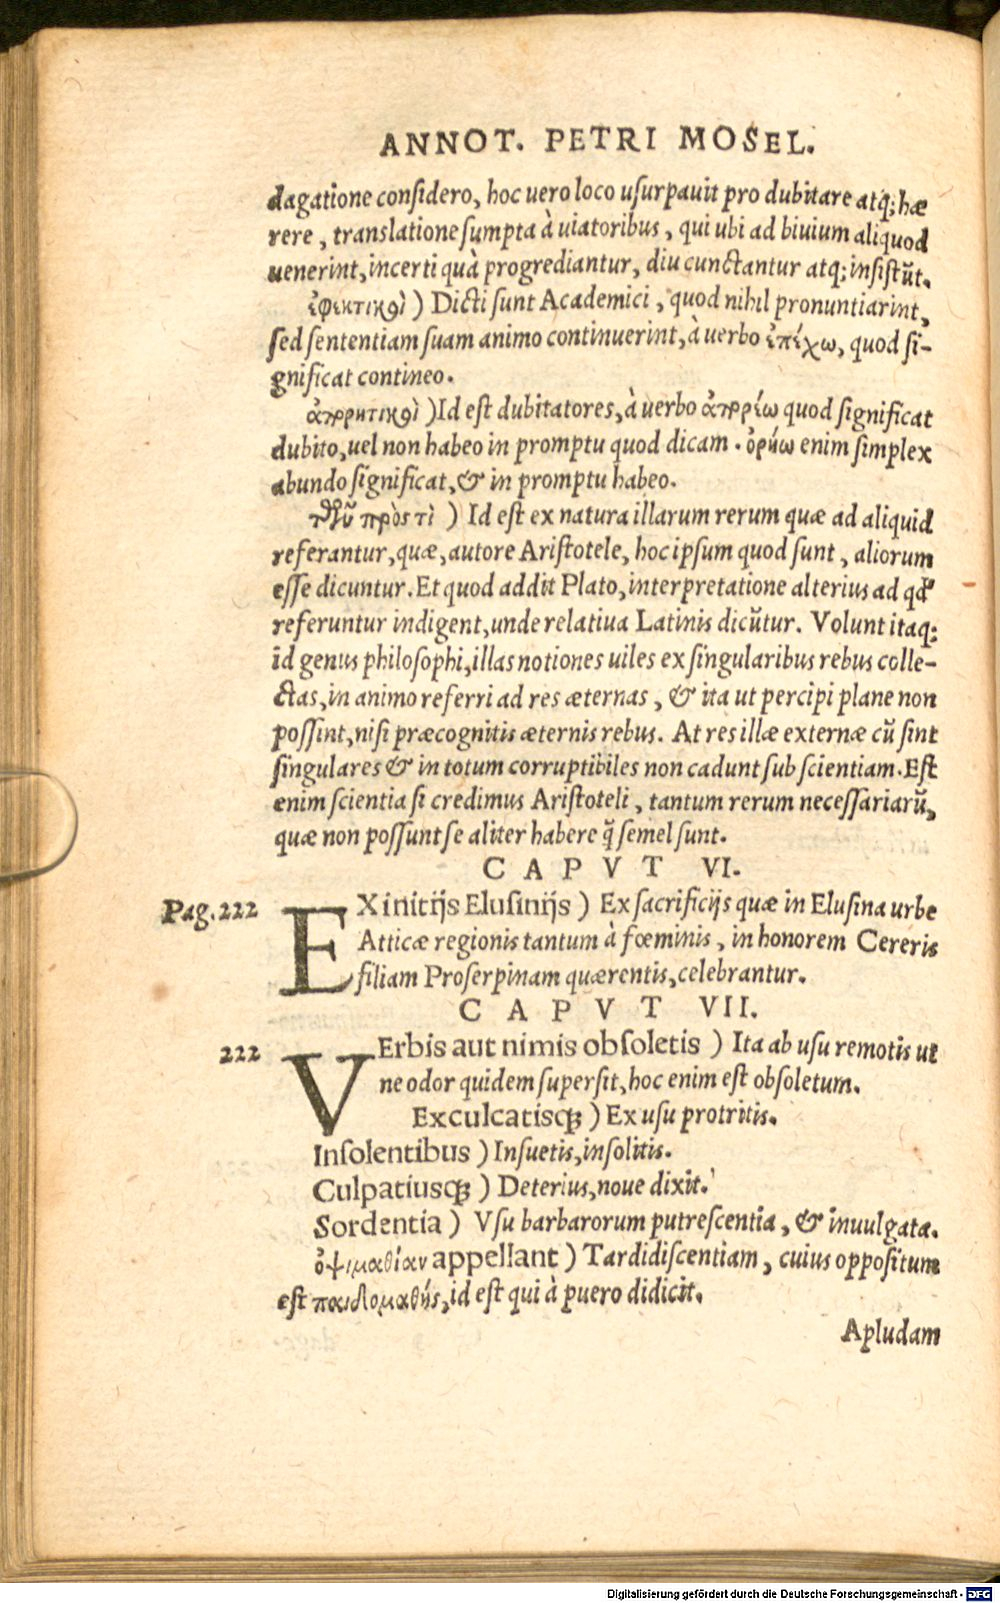 ANNOT. PETRI MOSEL.
dagatione considero, hoc uero loco usurpauit pro dubitare atq; hæ
rere, translatione sumpta à uiatoribus, qui ubi ad biuium aliquod
uenerint, incerti quà progrediantur, diu cunctantur atq; insistũt.
ἐφεκτικοὶ) Dicti sunt Academici, quod nihil pronuntiarint,
sed sententiam suam animo continuerint, à uerbo ἐπέχω, quod si-
gnificat contineo.
ἀπορητικοὶ) Id est dubitatores, à uerbo ἀπορέω quod significat
dubito, uel non habeo in promptu quod dicam. enim simplex
abundo significat, & in promptu habeo.
τῶν πρὸς τὶ) Id est ex natura illarum rerum quæ ad aliquid
referantur, quæ, autore Aristotele, hoc ipsum quod sunt, aliorum
esse dicuntur. Et quod addit Plato, interpretatione alterius ad qđ
referuntur indigent, unde relatiua Latinis dicũtur. Volunt itaq;
id genus philosophi, illas notiones uiles ex singularibus rebus colle-
ctas, in animo referri ad res æternas, & ita ut percipi plane non
possint, nisi præcognitis æternis rebus. At res illæ externæ cũ sint
singulares & in totum corruptibiles non cadunt sub scientiam. Est
enim scientia si credimus Aristoteli, tantum rerum necessariarũ,
quæ non possunt se aliter habere q̃ semel sunt.
CAPVT VI.
Pag. 222 EX initijs Elusinijs) Ex sacrificijs quæ in Elusina urbe
Atticæ regionis tantum à fœminis, in honorem Cereris
filiam Proserpinam quærentis, celebrantur.
CAPVT VII.
222 VErbis aut nimis obsoletis) Ita ab usu remotis ut
ne odor quidem supersit, hoc enim est obsoletum.
Exculcatisq;) Ex usu protritis.
Insolentibus) Insuetis, insolitis.
Culpatiusq;) Deterius, noue dixit.
Sordentia) Vsu barbarorum putrescentia, & inuulgata.
ὀψιμαθίαν appellant) Tardidiscentiam, cuius oppositum
est παιδομαθής, id est qui à puero didicit.
Apludam
Digitalisierung gefördert durch die Deutsche Forschungsgemeinschaft - DFG